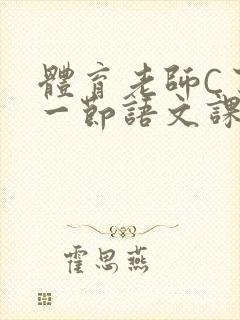 體育老師C
一節語文課
霍思燕